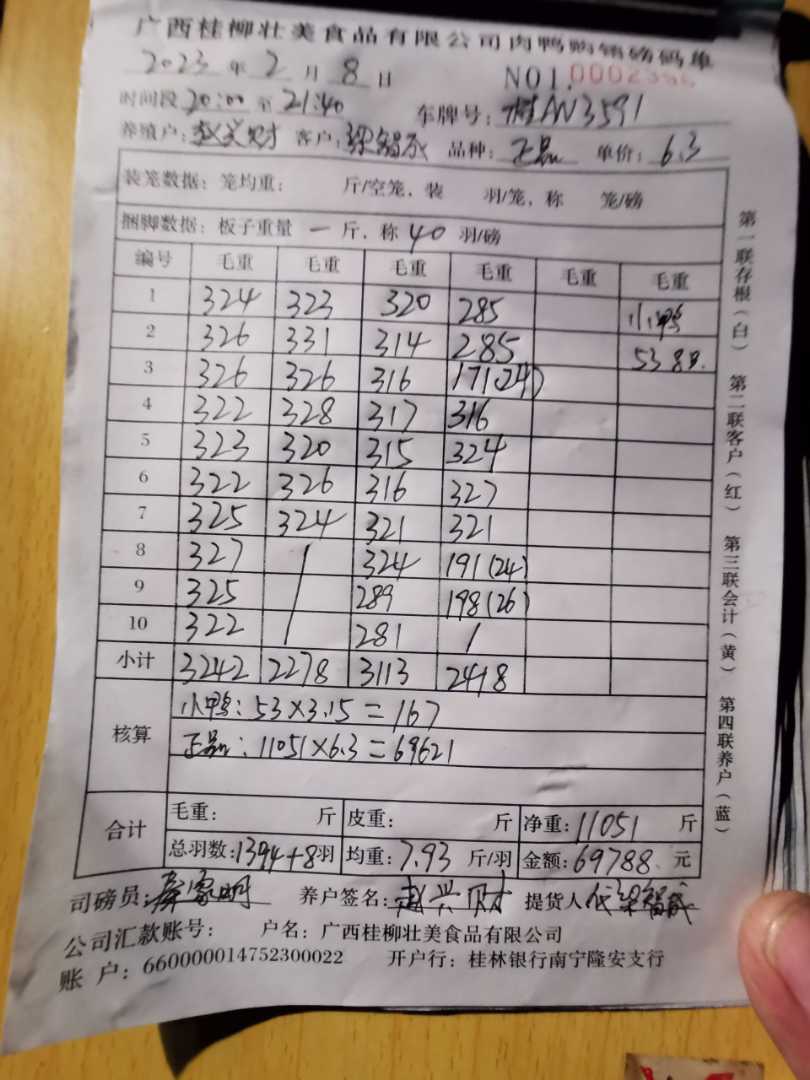 广西桂柳壮美食品有限公司肉鸭购销磅码单
2023 年 2 月 8 日 NO1.
时间段 20:00 至 21:40 车牌号: 桂AN3591
养殖户: 赵兴财 客户: 梁锡成 品种: 正品 单价: 6.3
装笼数据: 笼均重: 斤/空笼, 装 羽/笼, 称 笼/磅
捆脚数据: 板子重量 一 斤, 称 40 羽/磅
编号 毛重 毛重 毛重 毛重 毛重 毛重
1 324 323 320 285 小鸭
2 326 331 314 285 53 8只.
3 326 326 316 171(24)
4 322 328 317 316
5 323 320 315 324
6 322 326 316 327
7 325 324 321 321
8 327 / 324 191(24)
9 325 / 289 198(26)
10 322 / 281 /
小计 3242 2278 3113 2418
核算
小鸭: 53×3.15=167
正品: 11051×6.3=69621
合计
毛重: 斤 皮重: 斤 净重: 11051 斤
总羽数: 1394+8羽 均重: 7.93 斤/羽 金额: 69788 元
司磅员: 家明 养户签名: 赵兴财 提货人
公司汇款账号: 户名: 广西桂柳壮美食品有限公司
账 户: 660000014752300022 开户行: 桂林银行南宁隆安支行
第一联存根(白) 第二联客户(红) 第三联会计(黄) 第四联养户(蓝)